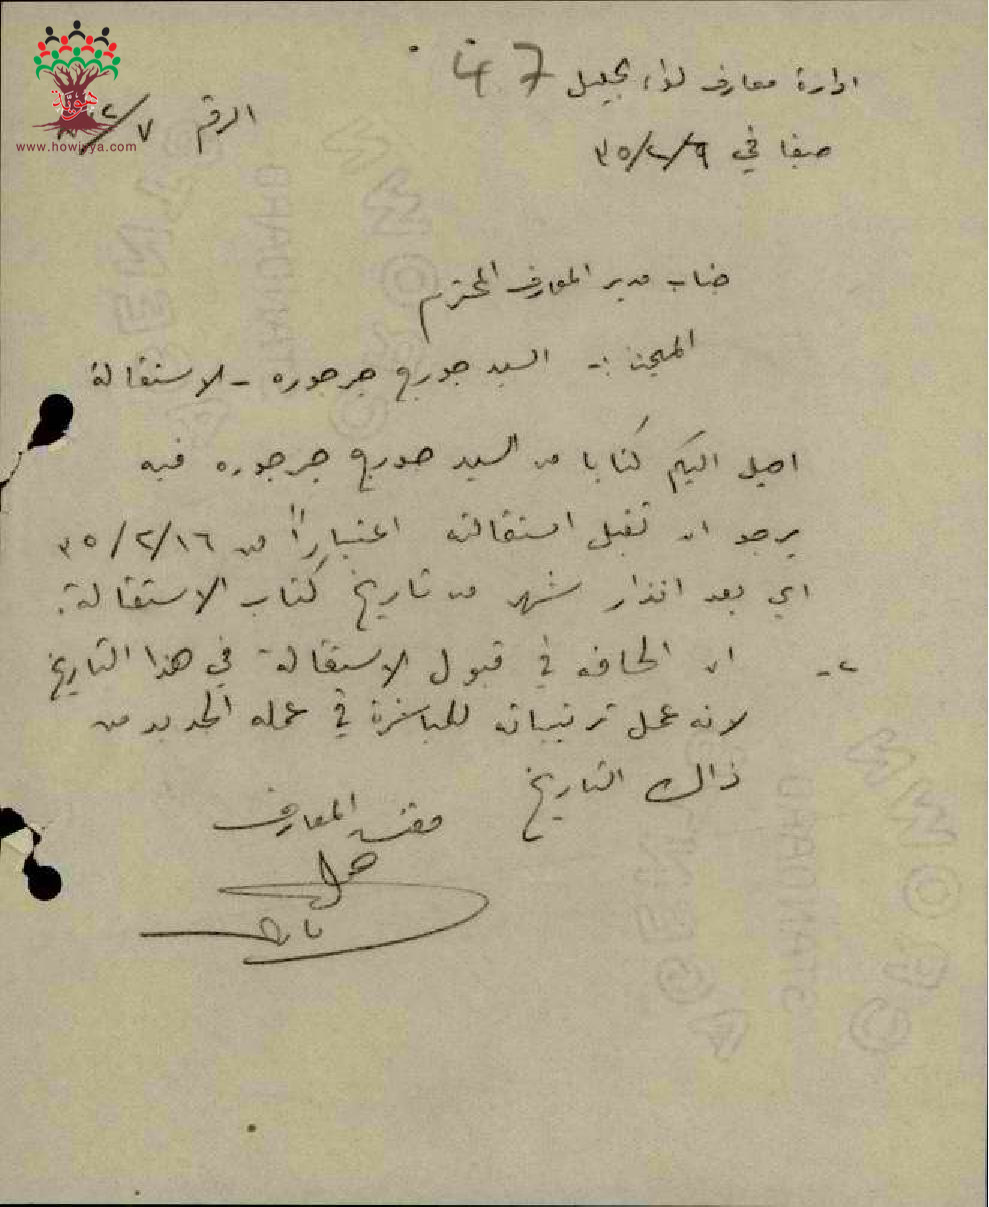 ادارة معارف لواء الجليل 47
الرقم ٧/٢
حيفا في ٣٥/٢/٩
هوية
www.howiyya.com
جناب مدير المعارف المحترم
المبحث :- السيد جورج جرجوره - الاستقالة
احيل اليكم كتابا من السيد جورج جرجوره فيه
يرجو ان تقبل استقالته اعتباراً من ٣٥/٢/١٦
اي بعد انذار شهر من تاريخ كتاب الاستقالة.
٢- ان في قبول الاستقالة في هذا التاريخ
لانه عمل ترتيباته للمباشرة في عمله الجديد من
ذلك التاريخ
مفتش المعارف